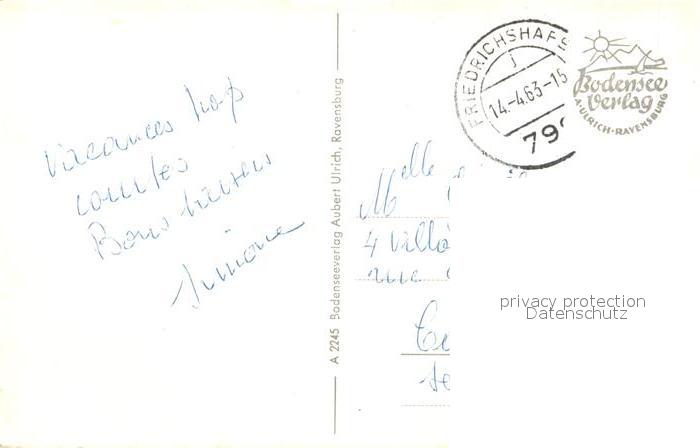 Vacances trop
courtes
Bons baisers
Simone
A 2245 Bodenseeverlag Aubert Ulrich, Ravensburg
FRIEDRICHSHAFE
j
14.-4.63-15
799
Bodensee
Verlag
A. ULRICH · RAVENSBURG
Melle
4 Villa
rue
privacy protection
Datenschutz